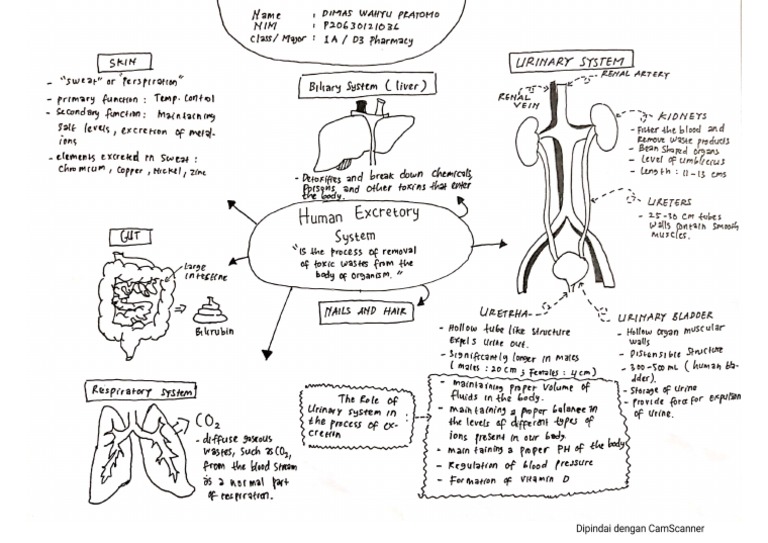 Name : DIMAS WAHYU PRATOMO
NIM : P20630121036
Class/Major : 1A / D3 Pharmacy
SKIN
- "sweat" or "perspiration"
- primary function : Temp. Control
- Secondary function : Maintaining
salt levels, excretion of metal-
ions
- elements excreted in sweat :
chromium, copper, nickel, zinc
Biliary System (liver)
- Detoxifies and break down chemicals,
Poisons, and other toxins that enter
the body.
URINARY SYSTEM
RENAL ARTERY
RENAL
VEIN
KIDNEYS
- Filter the blood and
Remove waste products
- Bean shaped organs
- Level of umbilicus
- Length : 11-13 cms
URETERS
- 25-30 cm tubes
walls contain smooth
muscles.
Human Excretory
System
"is the process of removal
of toxic wastes from the
body of organism."
GUT
Large
intestine
Bilirubin
NAILS AND HAIR
URETRHA
- Hollow tube like structure
Expels urine out.
- Significantly longer in males
(males : 20 cm ; Females : 4 cm)
URINARY BLADDER
- Hollow organ muscular
walls
- Distensible structure
- 300-500 mL (human bla-
dder).
- Storage of urine
- Provide force for expulsion
of urine.
Respiratory System
CO2
- diffuse gaseous
wastes, such as CO2,
from the blood stream
as a normal part
of respiration.
The Role of
Urinary system in
the process of ex-
cretion
- maintaining proper volume of
fluids in the body.
- maintaining a proper balance in
the levels of different types of
ions present in our body.
- maintaining a proper PH of the body
- Regulation of blood pressure
- Formation of vitamin D
Dipindai dengan CamScanner